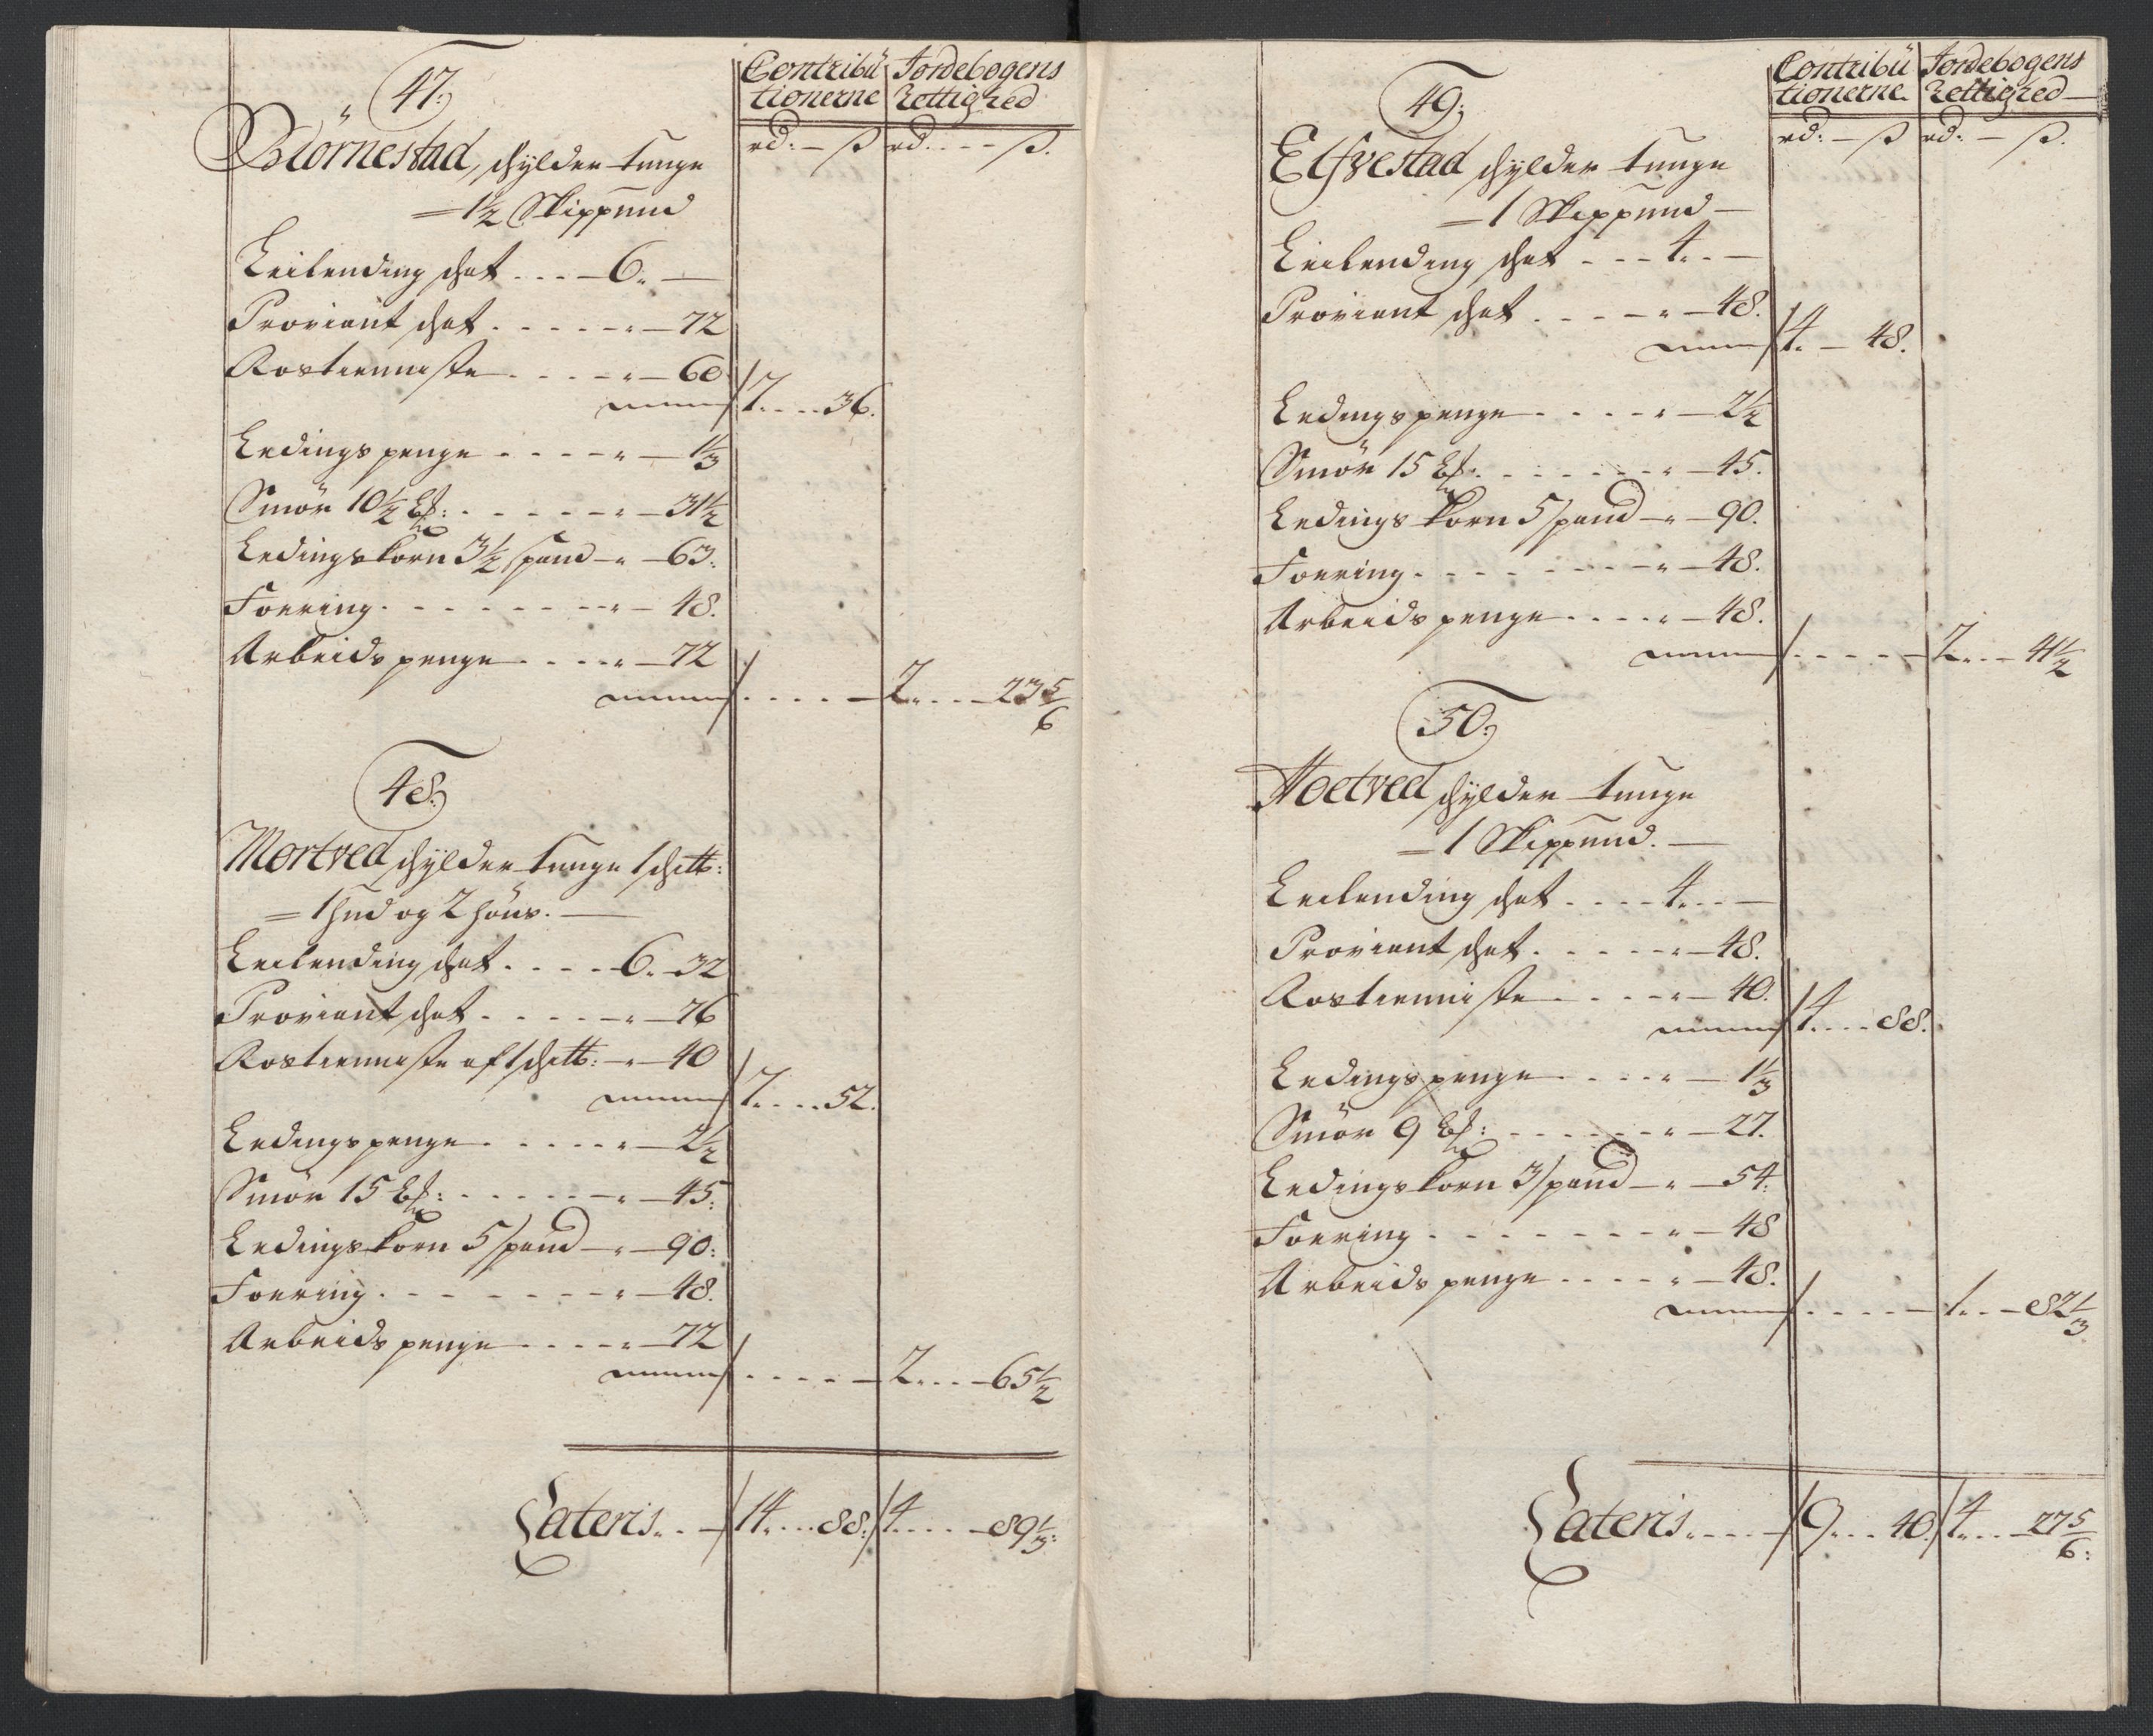 Contribu Jordebogens
tionerne Rettighed
rd: – ß rd. – ß.
47.
Biörnestad, schylder tunge
1½ Skippund
Leilending schat . . . . 6. —
Proviant schat . . . . . . „ — 72
Rostienniste . . . . . „ — 60
7. . . . 36.
Ledings penge . . . . „ — 1⅓
Smör 10½ . . . . . . „ — 31½
Ledings korn 3½ spand — „ — 63.
Foering . . . . . . . . „ — 48.
Arbeids penge . . . . „ — 72
. . . . . 2. . . . 23 5/6
48.
Mortved schylder tunge 1 schitt:
1 hud og 2 höns.
Leilending schat . . . . 6. 32
Proviant schat . . . . . „ — 76
Rostienniste af 1 schitt: — „ — 40
7. . . . 52.
Ledings penge . . . . . „ — 2½
Smör 15 . . . . . . „ — 45.
Ledings korn 5 spand — „ — 90.
Foering . . . . . . . „ — 48.
Arbeids penge . . . . „ — 72
. . . . . 2. . . . 65½
Lateris . . 14. . . . 88. 4. . . . 89⅓.
Contribu Jordebogens
tionerne Rettighed
rd: – ß rd: – ß.
49.
Elfvestad schylder tunge
1 Skippund
Leilending schat . . . 4. . —
Proviant schat . . . . „ — 48.
4. — 48.
Ledings penge . . . . „ — 2½
Smör 15 . . . . . . . „ — 45.
Ledings korn 5 spand — „ — 90.
Foering . . . . . . . . „ — 48.
Arbeids penge . . . . „ — 48.
. . . . . 2. . . 41½
50.
Hoetved schylder tunge
1 Skippund.
Leilending schat . . . . 4. . . —
Proviant schat . . . . . „ — 48.
Rostienniste . . . . „ — 40.
4. . . . 88.
Ledings penge . . . . „ — 1⅓
Smör 9 . . . . . . „ — 27.
Ledings korn 3 spand — „ — 54.
Foering . . . . . . . „ — 48
Arbeids penge . . . . „ — 48.
. . . . 1. . . 82⅓
Lateris . . . . 9. . . 40. 4. . . 27 5/6.